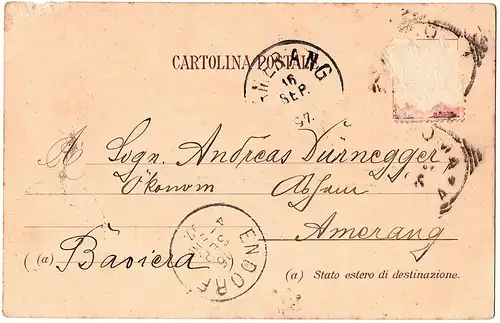 CARTOLINA POSTALE
AMERANG
16
SEP.
97.
A Sogn. Andreas Dürnegger
Ökonom
Amerang
(a) Baviera
ENDORF
16
SEP
(a) Stato estero di destinazione.